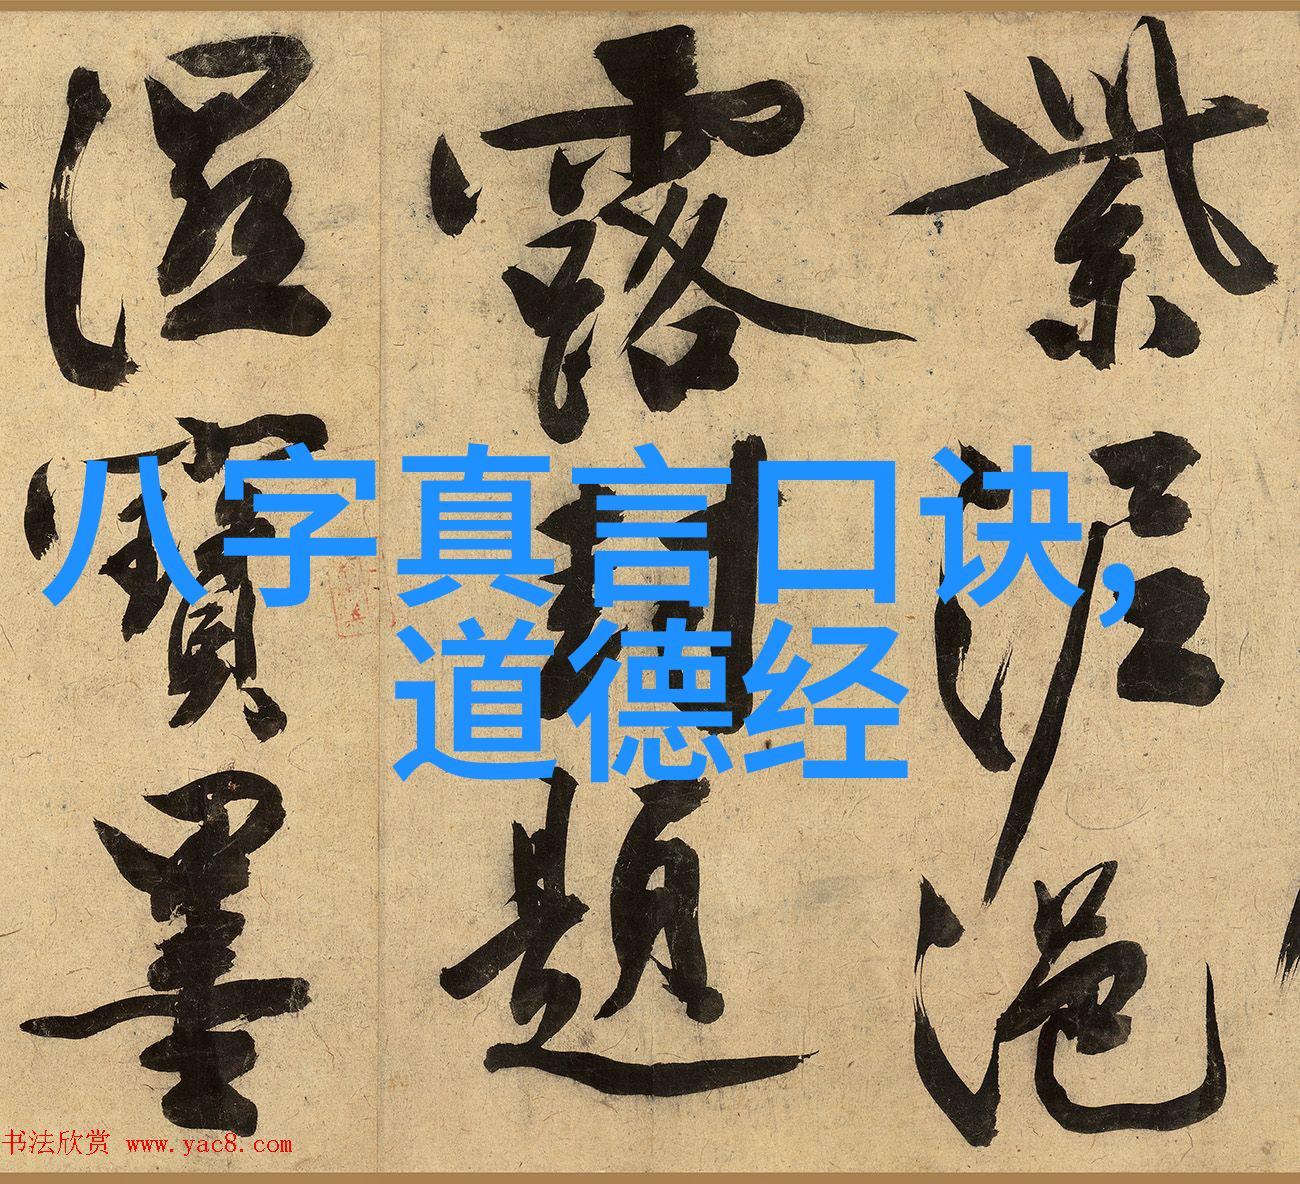 紫泥浥
露封題
溼寶墨
八字真言口诀,
道德经
书法欣赏 www.yac8.com